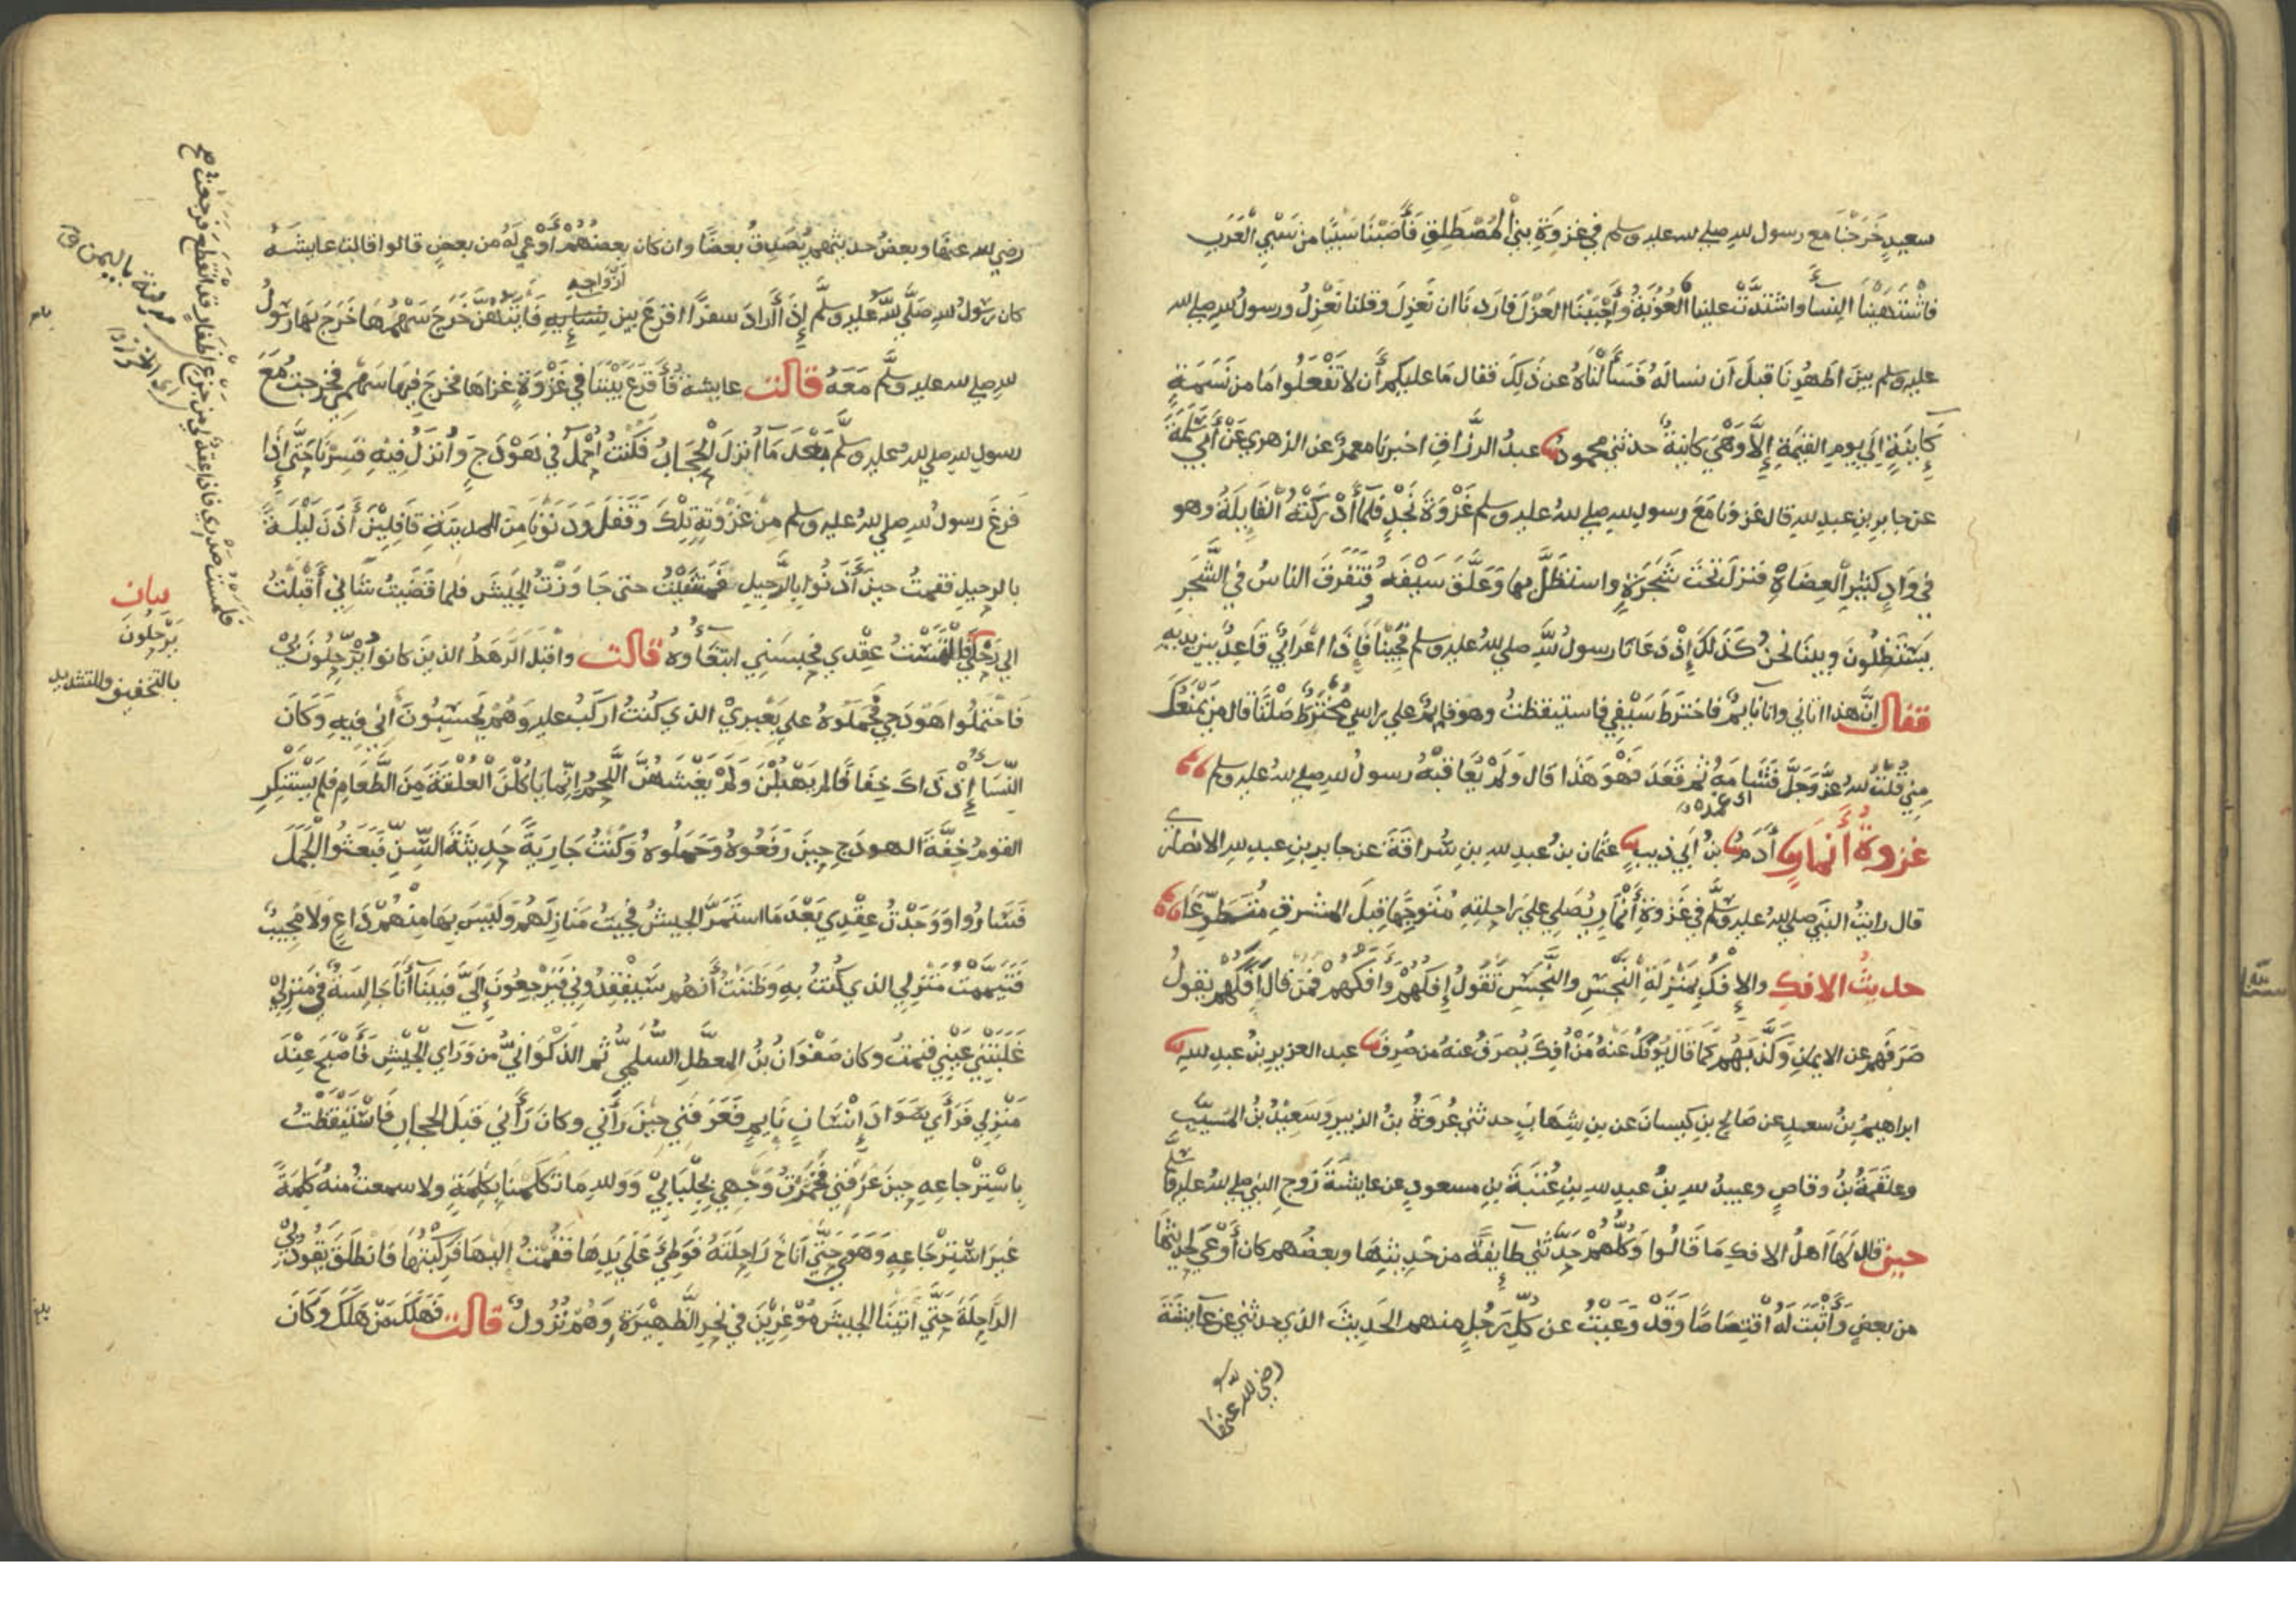 سعيدٍ خَرَجْنَا مع رسول لله صلي لله عليه وسلم في غزوَةِ بنيْ الْمُصْطَلِقِ فَأَصَبْنَا سَبْيًا من سَبْيِ الْعَرَبِ
فاشْتَهَيْنَا النِّسَآءَ واشتدَّتْ علينا الْعُزْبَةُ وَأَحْبَبْنَا العَزْلَ فارَدنَا ان نَعْزِلَ وقلنا نَعْزِلُ ورسولُ لله صلي لله
عليه وسلم بين اَظهُرِنَا قبلَ اَن نسالَهُ فَسَأَلْنَاهُ عن ذٰلِكَ فقال مَا عليكم أَن لا تَفْعَلُوا مَا من نَسَمَةٍ
كَايِنَةٍ اِلَي يومِ القيٰمَةِ اِلَّا وَهْيَ كاينةٌ حدثني محمودٌ عبدُ الرزَّاقِ اخبرنا معمرٌ عن الزهري عَنْ أَبِي سَلَمَةَ
عن جابرِ بنِ عبدِ لله قال غزونَا مَعَ رسولِ لله صلي لله عليه وسلم غَزْوَةَ نَجْدٍ فلمَّا أَدْرَكَتْهُ الْقَايِلَةُ وهو
في وَادٍ كثيرِ الْعِضَاةِ فنزلَ تحْتَ شَجَرَةٍ واستظلَّ بها وَعَلَّقَ سَيْفَهُ فَتَفَرقَ الناسُ في الشَّجَرِ
يَسْتَظِلُّونَ وبينَا نحنُ كَذٰلكَ إِذْ دَعَانَا رسولُ للَّهِ صلي للهُ عليه وسلم فَجِئنَا فَإِذَا اعْرَابيٌّ قَاعِدٌ بين يديهِ
فقال اِنَّ هذا اتاني وانا نايمٌ فاخترَطَ سَيْفِي فاستيقظتُ وهو قايمٌ علي راسي مُخْتَرِطٌ صَلْتًا قال من يَمْنَعُكَ
مِنِّي قلتُ للهُ عزَّ وَجَلَّ فَشَامَهُ ثم قَعَدَ فَهْوَ هَذَا قال وَلَمْ يُعَاقِبْهُ رسولُ لله صلي للهُ عليه وسلم
اي غمده
غزوة أَنْمَارٍ أٰدَمُ بنُ أَبي ذيبٍ عثمان بنُ عبدِ لله بنِ سُرَاقَةَ عن جابرِ بنِ عبدِ لله الانصاري
قال رايتُ النبيَّ صلي للهُ عليه وسلَّم في غَزوَةِ أَنْمَارٍ يُصَلِي عَلي رَاحِلتِهِ مُتَوَجِّهًا قِبَلَ المشرقِ متطوِّعًا
حديثُ الافكِ والاِفْكُ بِمَنْزِلَةِ النِّجْسِ والنَّجَسِ تَقُولُ إِفكُهُمْ وَأَفَكَهُمْ فَمَن قال أَفَكَهُم يقولُ
صَرَفَهم عن الايمٰنِ وكَذَّبَهُم كما قال يُؤْفَكُ عَنْهُ مَنْ أُفِكَ يُصْرَفُ عنه من صُرِفَ عبد العزيزِ بنُ عبدِ للهِ
ابراهيمُ بنُ سعدٍ عن صَالحِ بنِ كيسانَ عن بنِ شِهَابٍ حدثني عُروَةُ بنُ الزبيرِ وَسَعِيْدُ بنُ المُسَيَّبِ
وعلقَمَةُ بنُ وقاصٍ وعبيدُ للهِ بنُ عبدِ للهِ بنِ عُتْبَةَ بنِ مسعودٍ عن عايشةَ زَوجِ النبي صلي للهُ عليه وسلَّم
حين قال لَهَا اَهلُ الافكِ مَا قَالُوا وَكُلُّهُمْ حَدَّثَني طَايفةً من حَدِيثِهَا وبعضُهم كان أَوْعَي لحديثِهَا
من بعضٍ وَأَثْبَتَ لَهُ اقْتِصَاصًا وَقَدْ وَعَيْتُ عن كلِّ رَجُلٍ منهم الحَدِيثَ الذي حدثني عن عايشةَ
رضي لله عنها
رضي لله عنهَا وبعضُ حديثهم يُصَدِّقُ بعضًا وان كان بعضُهُمْ أَوْعَي لَهُ من بعضٍ قالوا قالت عايشَةُ
ازواجه
كان رسولُ لله صَلَّي للهُ عليه وسلَّم إِذَا أَرَادَ سفرًا اقرعَ بين نسايِهِ فَأَيَّتُهُنَّ خَرَجَ سَهْمُهَا خَرَجَ بهَا رسولُ
لله صلي لله عليه وسلَّم مَعَهُ قالت عايشةُ فَأَقْرَعَ بَيْنَنَا في غَزْوَةٍ غزاها فخرجَ فِيهَا سَهْمِي فخرجتُ مَعَ
رسولِ لله صلي لله عليه وسلَّم بَعْدَ مَا اُنزلَ الْحِجَابُ فَكُنْتُ أُحْمَلُ في هَوْدَجٍ وَأُنزَلُ فِيْهِ فَسِرْنَا حَتَّى إِذَا
فَرغَ رسولُ لله صلي للهُ عليه وسلم مِنْ غَزْوَتِهِ تِلْكَ وَقَفَلَ وَدَنَوْنَا مِنَ المدينةِ قَافِلِيْنَ أَذَنَ لَيْلَةً
بالرحيلِ فقمتُ حينَ أَذَنُوا بالرَّحِيلِ فَمَشَيْتُ حتي جَاوَزْتُ الجَيْشَ فلما قَضَيْتُ شَانِي أَقْبَلْتُ
الي رَحْلي فالْتَمَسْتُ عِقْدي فحبَسَنِي ابتغَآوهُ قالت واقبلَ الرَهطُ الذينَ كانوا يُرَحِّلُونَ بِي
فَاحْتَمَلُوا هَوْدَجِي فَحَمَلُوهُ علي بَعِيرِيْ الذي كُنتُ اَركَبُ عليه وَهُمْ يحسِبُونَ اَني فِيهِ وَكَانَ
النِّسَآءُ إِذْ ذَاكَ خِفَافًا لم يَهْبُلْنَ وَلَمْ يَغْشَهُنَّ اللَّحمُ انِّما يَاكُلْنَ الْعُلْقَةَ مِنَ الطَّعَامِ فلم يَسْتَنْكِرِ
القومُ خِفَّةَ الهودَجِ حِينَ رَفَعُوهُ وَحَمَلُوهُ وَكُنْتُ جَارِيَةً حَدِيثَةَ السِّنِّ فَبَعَثُوا الْجَمَلَ
فَسَارُوا وَوَجَدْتُ عِقْدِي بَعْدَ مَا استَمَرَّ الجيشُ فجيتُ مَنَازِلَهُم وَلَيْسَ بِهَا مِنْهُمْ دَاعٍ وَلَا مُجِيبٌ
فَتَيَمَّمْتُ مَنْزِلِي الذي كُنتُ بهِ وَظَنَنْتُ أَنَّهُم سَيَفْقِدُونِي فَيَرْجِعُونَ إِلَيَّ فَبَيْنَا أَنَا جَالِسَةٌ في مَنزِلِي
غَلَبَتْنِي عَيْنِي فنمتُ وكان صَفْوَانُ بنُ المعطَّلِ السُّلَمِيُّ ثم الذَكْوَانيُّ من وَرَآي الجَيْشِ فَأَصْبَحَ عِنْدَ
مَنْزِلِي فَرَأَي سَوَادَ إِنْسَانٍ نَايِمٍ فَعَرَفَنِي حِينَ رَأَني وكانَ رَأَني قَبلَ الحجابِ فَاسْتَيْقَظْتُ
بِاسْتِرْجاعِهِ حِينَ عَرَفَنِي فَخَمَّرْتُ وَجْهِي بِجِلْبَابِيْ وَوَللهِ مَا تَكَلَّمنَا بِكَلِمَةٍ ولا سمعتُ منهُ كَلِمَةً
غَيرَ اسْتِرْجَاعِهِ وَهَوَي حَتَّي أَنَاخَ رَاحِلَتَهُ فَوَطِيَ عَلَي يَدِهَا فَقُمْتُ اليهَا فَرَكِبْتُهَا فَانطَلَقَ يَقُودُ بِي
الراحِلَةَ حَتَّي اَتينَا الجيشَ مُوْغِرِيْنَ في نَحْرِ الظَّهِيْرَةِ وَهُمْ نُزُولٌ قالت فَهَلَكَ مَنْ هَلَكَ وَكَانَ
فلمستُ صَدْرِي فاذا عِقْدٌ لِي من جَزْعِ أَظْفَارٍ قد انقَطَعَ فرجعتُ صح
مدينة باليمن
اي الخرز
بيان
يَرْحِلُونَ
بالتخفيف والتشديد